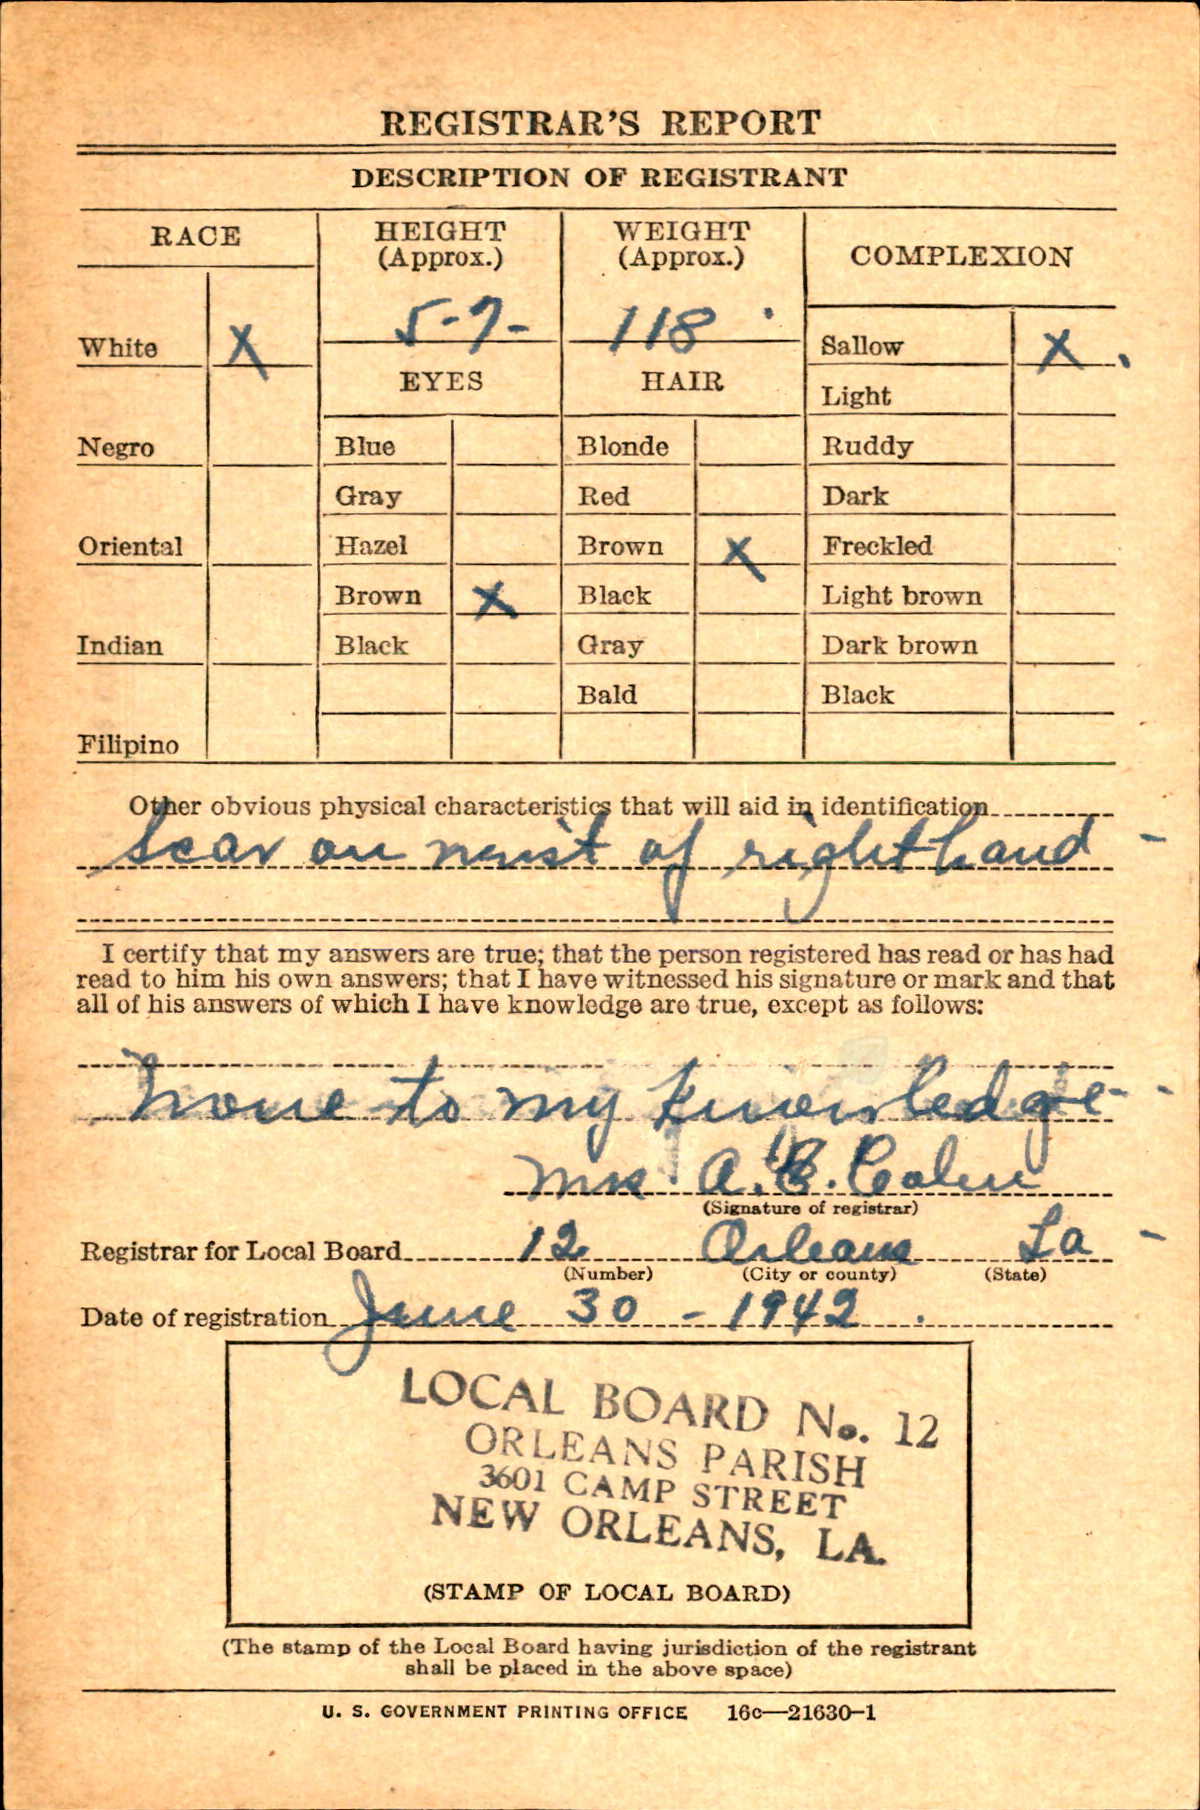 REGISTRAR'S REPORT
DESCRIPTION OF REGISTRANT
RACE
HEIGHT (Approx.)
WEIGHT (Approx.)
COMPLEXION
5-7-
118
White X
Sallow X
EYES
HAIR
Light
Negro
Blue
Blonde
Ruddy
Gray
Red
Dark
Oriental
Hazel
Brown X
Freckled
Brown X
Black
Light brown
Indian
Black
Gray
Dark brown
Bald
Black
Filipino
Other obvious physical characteristics that will aid in identification
Scar on wrist of right hand -
I certify that my answers are true; that the person registered has read or has had
read to him his own answers; that I have witnessed his signature or mark and that
all of his answers of which I have knowledge are true, except as follows:
None to my knowledge -
Mrs. A. E.
(Signature of registrar)
Registrar for Local Board 12 Orleans La -
(Number) (City or county) (State)
Date of registration June 30 - 1942.
LOCAL BOARD No. 12
ORLEANS PARISH
3601 CAMP STREET
NEW ORLEANS, LA.
(STAMP OF LOCAL BOARD)
(The stamp of the Local Board having jurisdiction of the registrant
shall be placed in the above space)
U. S. GOVERNMENT PRINTING OFFICE 16c—21630-1